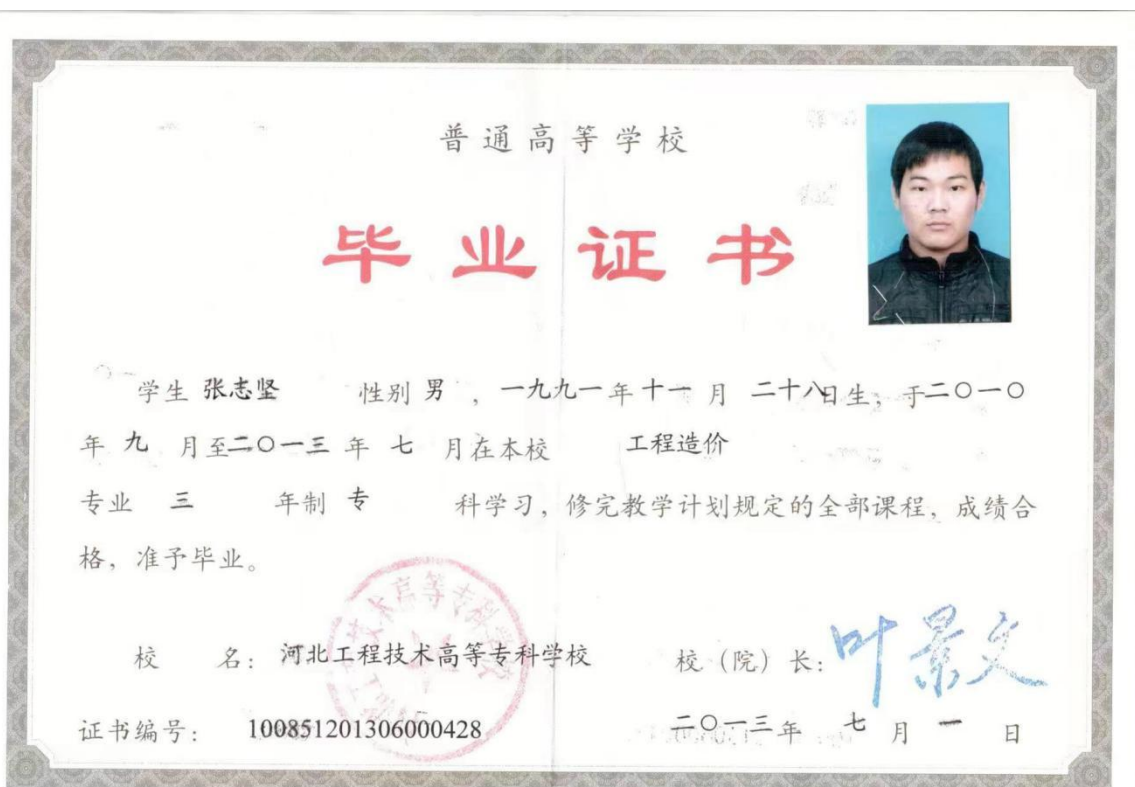 普通高等学校
毕业证书
学生 张志坚 性别 男 ，一九九一年十一月 二十八日生，于二〇一〇
年 九 月至二〇一三 年 七 月在本校 工程造价
专业 三 年制 专 科学习，修完教学计划规定的全部课程，成绩合
格，准予毕业。
校 名：河北工程技术高等专科学校
校（院）长：叶景文
证书编号： 100851201306000428
二〇一三年 七 月 一 日